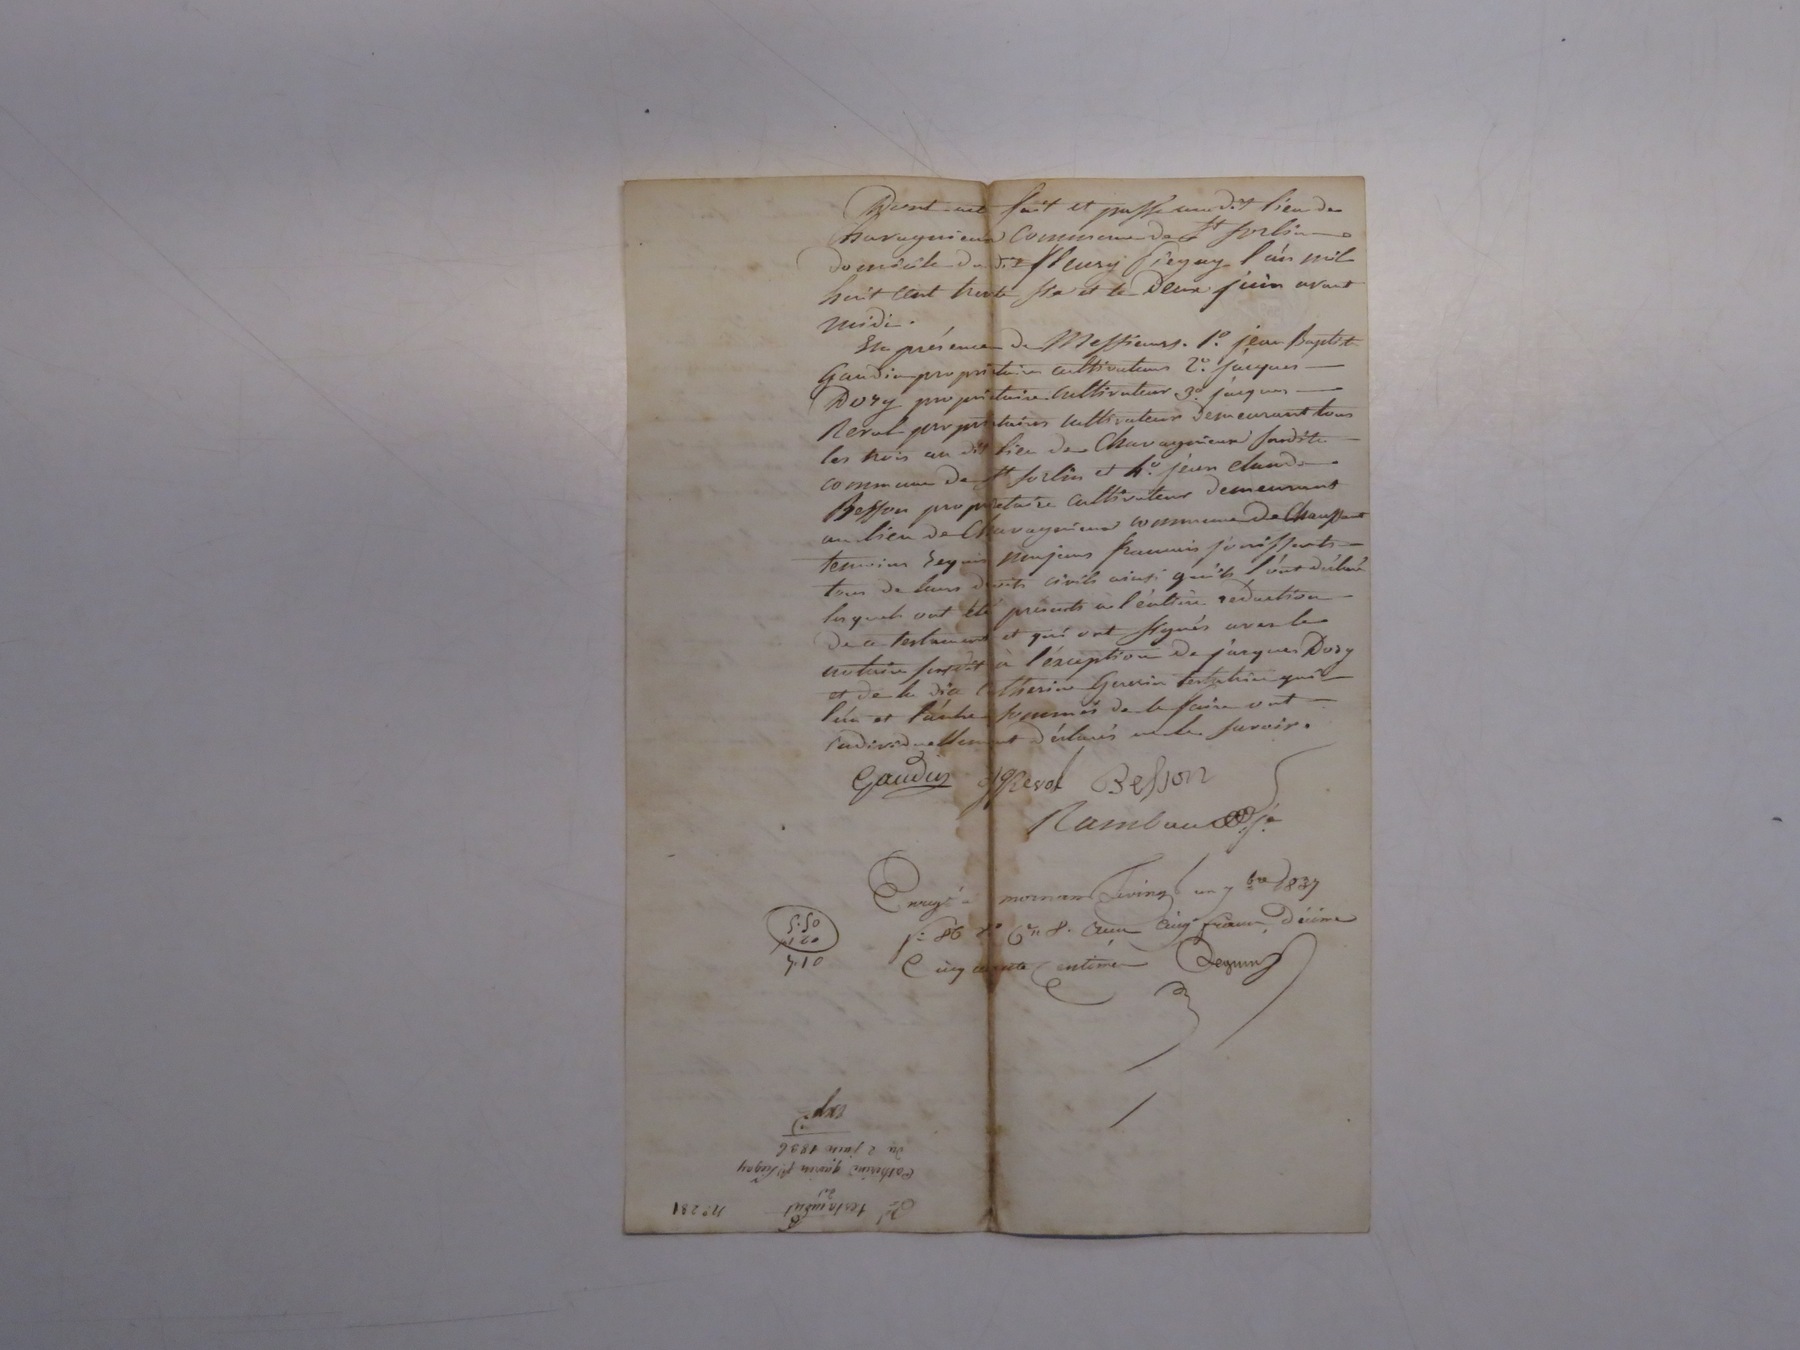 Dont acte fait et passé au dit lieu de
Chavagnieux commune de St Sorlin
domicile du dit fleury Siegay l'an mil
huit cent trente six et le Deux juin avant
midi.
En présence de Messieurs. 1º. jean Baptiste
Gaudin propriétaire cultivateur 2º. jacques
Dory propriétaire cultivateur 3º. jacques
Reval propriétaire cultivateur demeurant tous
les trois au dit lieu de Chavagnieux susdite
commune de St Sorlin et 4º. jean claude
Besson propriétaire cultivateur demeurant
au lieu de Chavagnieux commune de Chaussant
temoins requis majeurs francais jouissants
tous de leurs droits civils ainsi qu'ils l'ont déclaré
lesquels ont été présents à l'entière redaction
de ce testament et qui ont signés avec le
notaire susdit à l'éxception de jacques Dory
et de la dite Catherine Guerin testatrice qui
l'un et l'autre sommés de le faire ont
individuellement déclarés ne le savoir.
Gaudin Reval Besson
Rambaud
Enregé à mornant le vingt un 7bre 1837
fº 86 Rº Cse 8. reçu cinq francs, décime
Cinquante centimes
5.50
1.20
7.10
Exp
du 2 juin 1836
Catherine guerin fe Siegay
testament
Nº 281